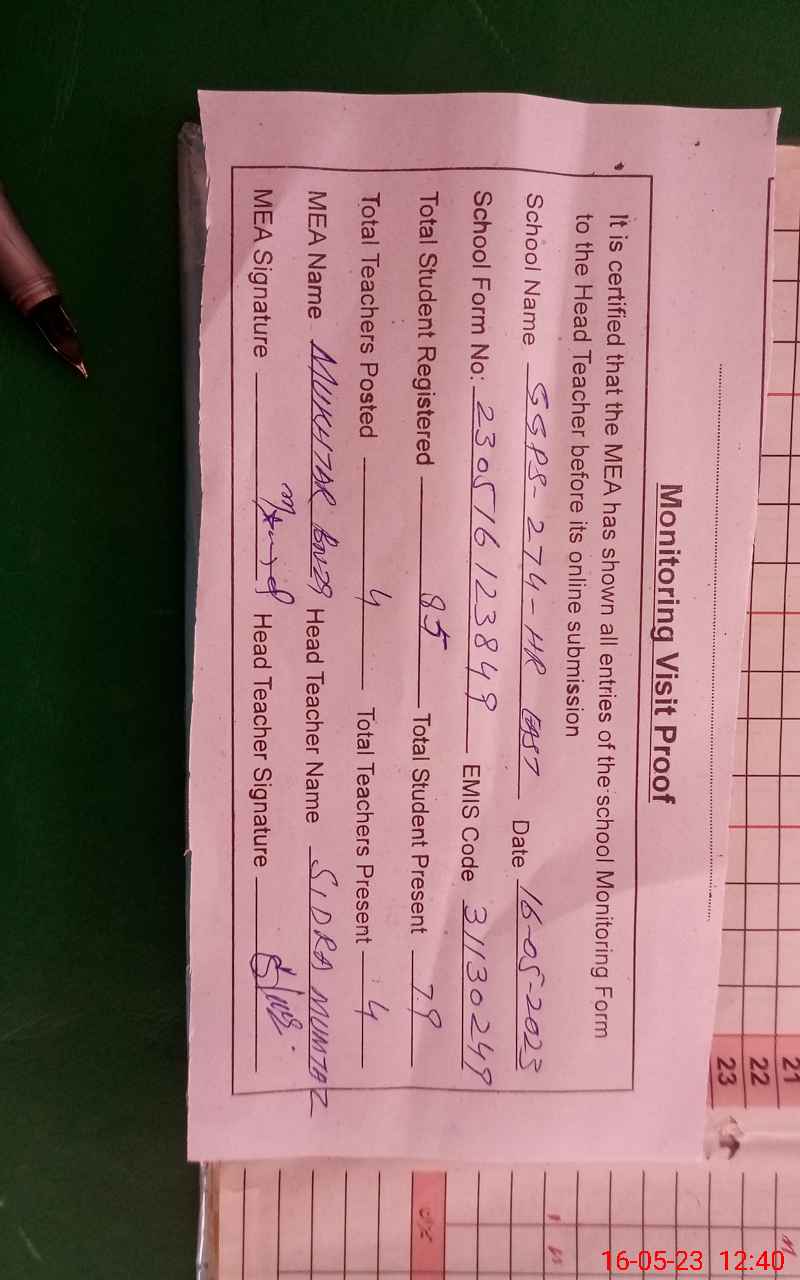 Monitoring Visit Proof
It is certified that the MEA has shown all entries of the school Monitoring Form
to the Head Teacher before its online submission
School Name SSPS-274-HR EAST Date 16-05-2023
School Form No: 230516123849 EMIS Code 31130249
Total Student Registered 85 Total Student Present 79
Total Teachers Posted 4 Total Teachers Present 4
MEA Name MUKHTAR Head Teacher Name SIDRA MUMTAZ
MEA Signature Head Teacher Signature
21
22
23
16-05-23 12:40